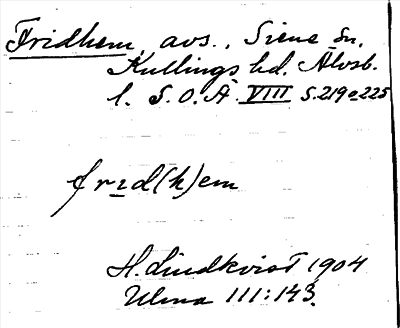 Fridhem, avs., Siene sn,
Kullings hd. Älvsb.
l. S.O.Ä VIII S.219 o 225
frid(h)em
H. Lindkvist 1904
Ulma 111:143.